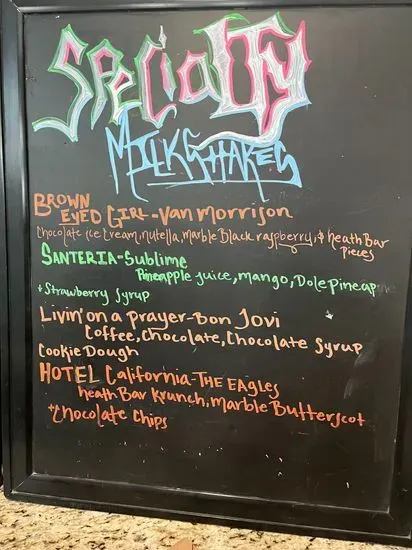 Specialty
Milkshakes
Brown
Eyed Girl-Van Morrison
Chocolate ice cream, nutella, Marble Black raspberry, & heath Bar
Pieces
Santeria-Sublime
Pineapple juice, mango, Dole Pineap
+ Strawberry Syrup
Livin' on a Prayer-Bon Jovi
Coffee, Chocolate, Chocolate Syrup
Cookie Dough
Hotel California-The Eagles
heath Bar Krunch, Marble Butterscot
+ Chocolate Chips